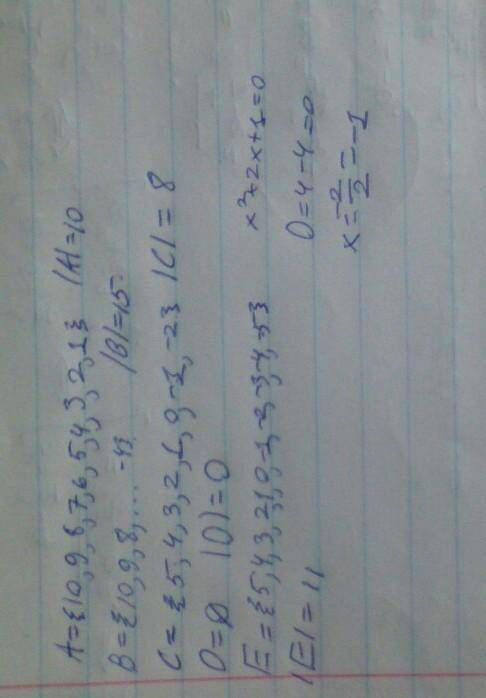 A={10,9,8,7,6,5,4,3,2,1} |A|=10
B={10,9,8,... -4} |B|=15
C={5,4,3,2,1,0,-1,-2} |C|=8
D=∅ |D|=0
E={5,4,3,2,1,0,-1,-2,-3,-4,-5}
|E|=11
x²+2x+1=0
D=4-4=0
x=-2/2=-1